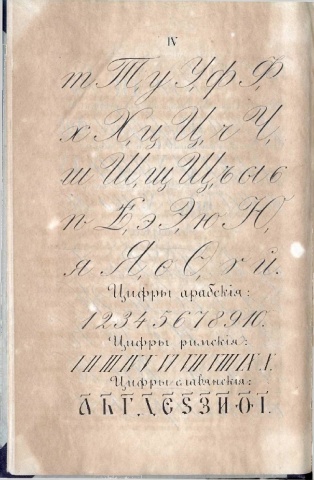 IV
т Т, у У, ф Ф,
х Х, ц Ц, ч Ч,
ш Ш, щ Щ, ъ ы ь
ѣ Ѣ, э Э, ю Ю,
я Я, ѳ Ѳ, ѵ й.
Цифры арабскія:
1 2 3 4 5 6 7 8 9 10.
Цифры римскія:
I II III IV V VI VII VIII IX X.
Цифры славянскія:
А҃ В҃ Г҃ Д҃ Е҃ Ѕ҃ З҃ И҃ Ѳ҃ І҃.